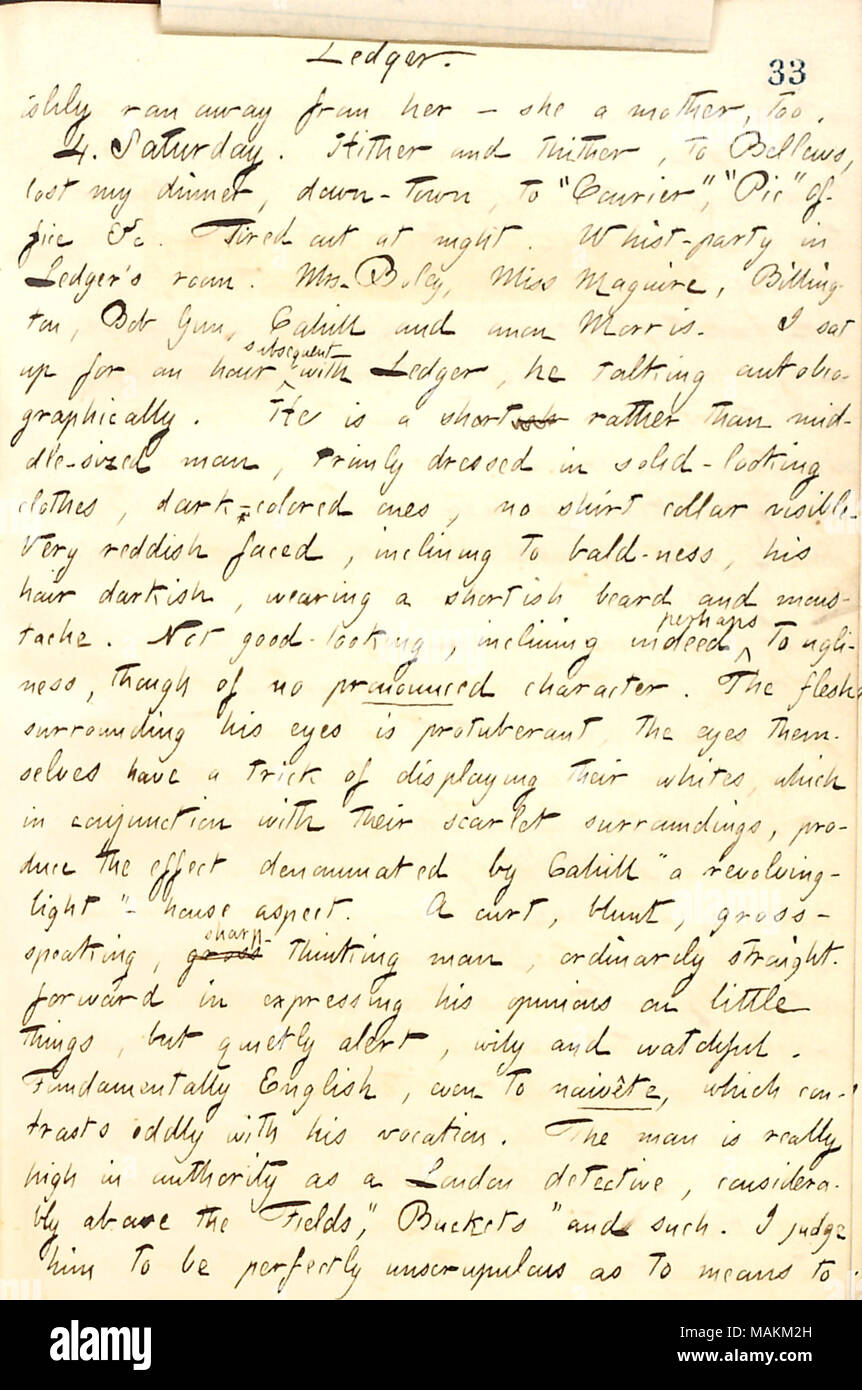 Ledger.
33
ishly ran away from her — she a mother, too.
4. Saturday. Hither and thither, to Bellews,
lost my dinner, down-town, to "Courier", "Pic" of-
fice &c. Tired out at night. Whist-party in
Ledger's room. Mrs. Boley, Miss Maguire, Billing-
ton, Bob Gun, Cahill and anon Morris. I sat
up for an hour subsequent with Ledger, he talking autobio-
graphically. He is a shortish rather than mid-
dle-sized man, primly dressed in solid-looking
clothes, dark-colored ones, no shirt collar visible.
Very reddish faced, inclining to bald-ness, his
hair darkish, wearing a shortish beard and mous-
tache. Not good-looking, inclining indeed perhaps to ugli-
ness, though of no pronounced character. The flesh
surrounding his eyes is protuberant, the eyes them-
selves have a trick of displaying their whites, which
in conjunction with their scarlet surroundings, pro-
duce the effect denominated by Cahill "a revolving-
light"-house aspect. A curt, blunt, gross-
speaking, gross sharp-thinking man, ordinarily straight-
forward in expressing his opinions on little
things, but quietly alert, wily and watchful.
Fundamentally English, even to naivête, which con-
trasts oddly with his vocation. The man is really
high in authority as a London detective, considera-
bly above the "Fields," "Buckets" and such. I judge
him to be perfectly unscrupulous as to means to
alamy
Image ID: MAKM2H
www.alamy.com